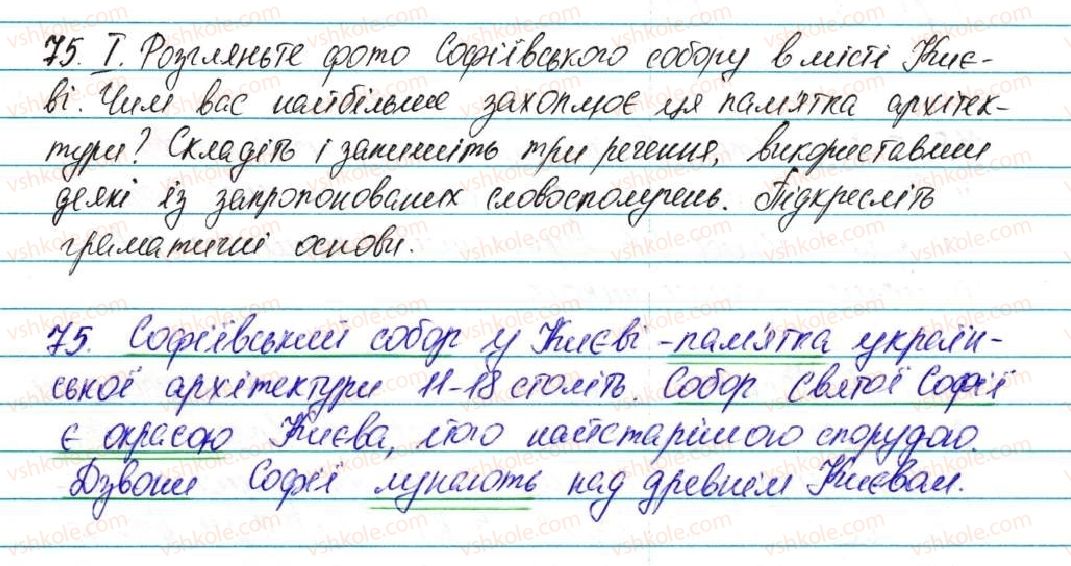 75. I. Розгляньте фото Софіївського собору в місті Киє-
ві. Чим вас найбільше захоплює ця пам'ятка архітек-
тури? Складіть і запишіть три речення, використавши
деякі із запропонованих словосполучень. Підкресліть
граматичні основи.
75. Софіївський собор у Києві - пам'ятка україн-
ської архітектури 11-18 століть. Собор Святої Софії
є окрасою Києва, його найстарішою спорудою.
Дзвони Софії лунають над древнім Києвом.